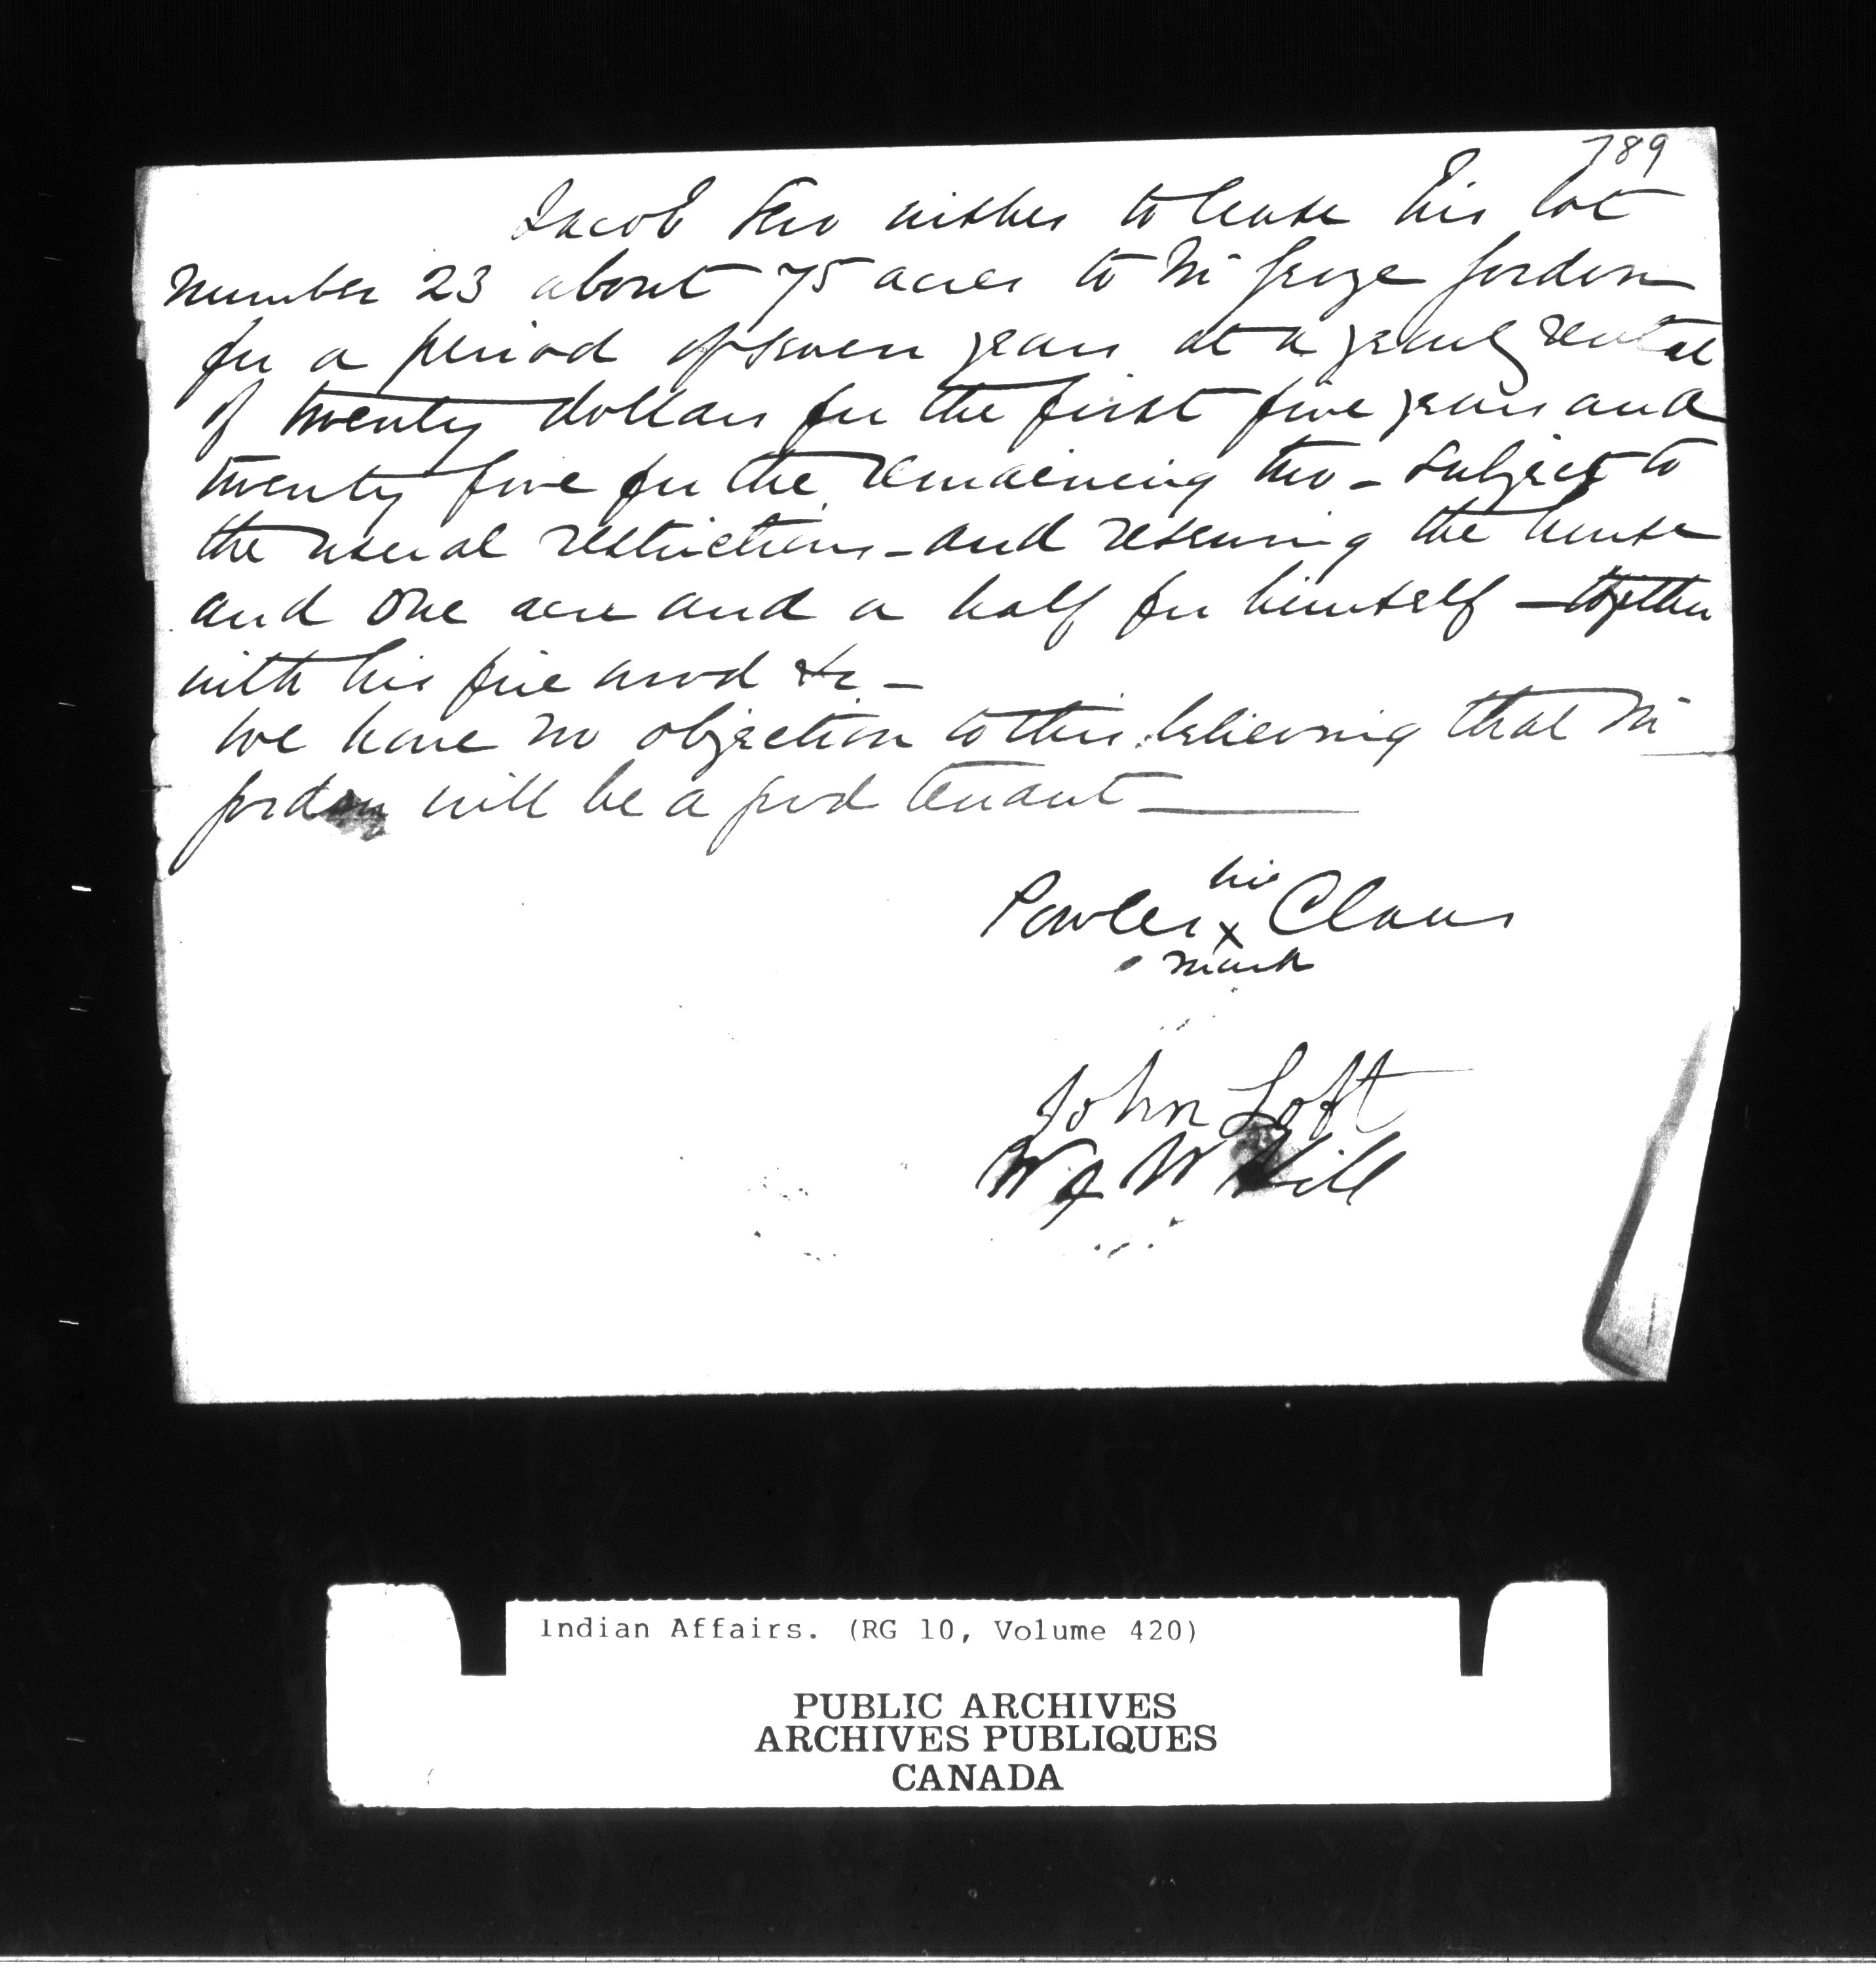 789
Jacob wishes to lease his lot
number 23 about 75 acres to Mr George Jordon
for a period of seven years at a yearly rental
of twenty dollars for the first five years and
twenty five for the remaining two - subject to
the usual restrictions - and reserving the house
and one acre and a half for himself - together
with his fire wood &c -
We have no objection to this believing that Mr
Jordon will be a good tenant
his
Powles x Claus
mark
John Loft
W Hill
Indian Affairs. (RG 10, Volume 420)
PUBLIC ARCHIVES
ARCHIVES PUBLIQUES
CANADA